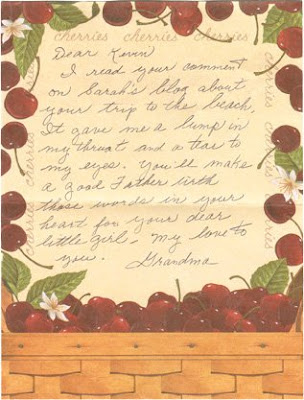 cherries cherries cherries
Dear Kevin
I read your comment
on Sarah's blog about
your trip to the beach,
It gave me a lump in
my throat and a tear to
my eyes. You'll make
a good Father with
those words in your
heart for your dear
little girl. My love to
you. Grandma
cherries
cherries
cherries
cherries